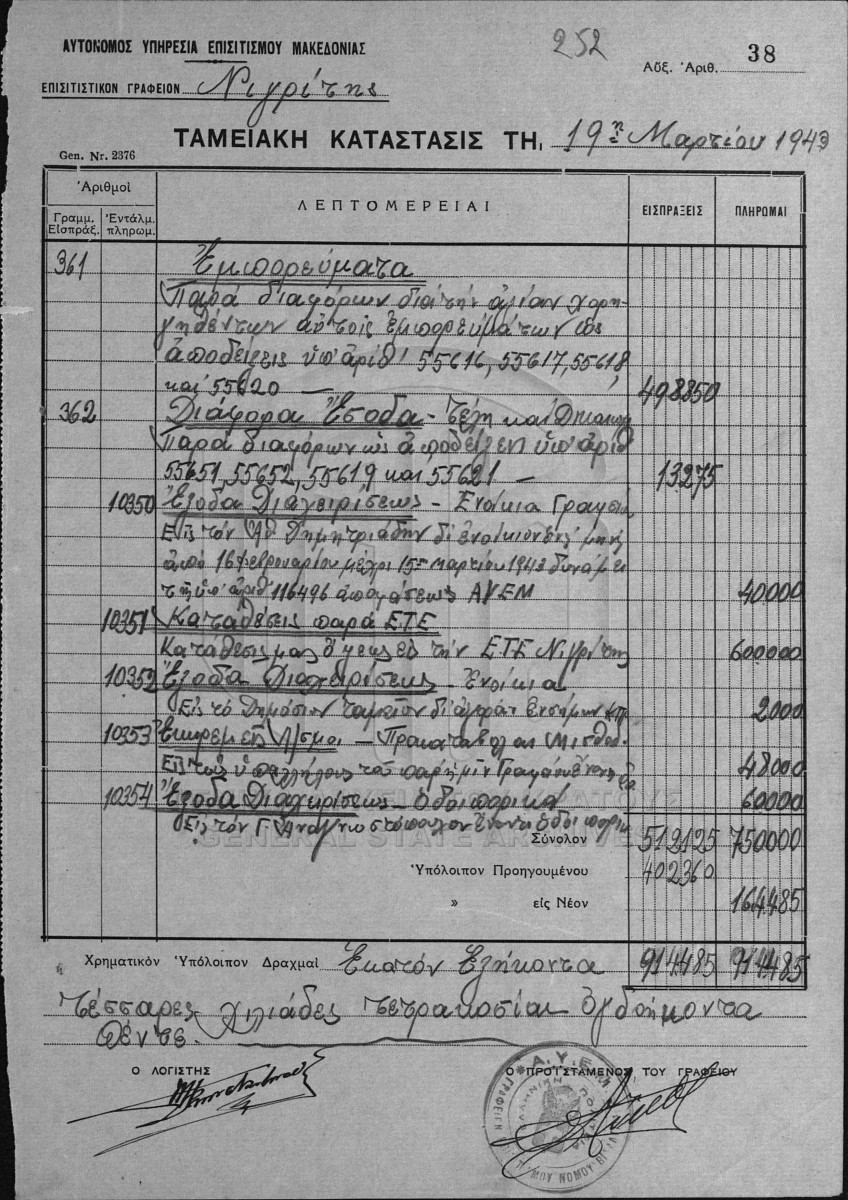 252
ΑΥΤΟΝΟΜΟΣ ΥΠΗΡΕΣΙΑ ΕΠΙΣΙΤΙΣΜΟΥ ΜΑΚΕΔΟΝΙΑΣ
Αὔξ. Ἀριθ. 38
ΕΠΙΣΙΤΙΣΤΙΚΟΝ ΓΡΑΦΕΙΟΝ Νιγρίτης
ΤΑΜΕΙΑΚΗ ΚΑΤΑΣΤΑΣΙΣ ΤΗι 19ῃ Μαρτίου 1943
Gen. Nr. 2376
Ἀριθμοί
Γραμμ. Εἰσπράξ. Ἐντάλμ. πληρωμ. ΛΕΠΤΟΜΕΡΕΙΑΙ ΕΙΣΠΡΑΞΕΙΣ ΠΛΗΡΩΜΑΙ
361 Ἐμπορεύματα
Παρά διαφόρων διά τήν ἀξίαν χορη-
γηθέντων αὐτοῖς ἐμπορευμάτων ὡς
ἀποδείξεις ὑπ' ἀριθ' 55616, 55617, 55618,
καί 55620 — 498850
362 Διάφορα Ἔσοδα - Τέλη καί
Παρά διαφόρων ὡς ἀποδείξεις ὑπ' ἀριθ
55651, 55652, 55619 καί 55621 — 13275
10350 Ἔξοδα Διαχειρίσεως - Ἐνοίκια Γραφείου
Εἰς τόν Δημητριάδην δι' ἐνοίκιον ἑνός μηνός
ἀπό 16 Φεβρουαρίου μέχρι 15ης Μαρτίου 1943 δυνάμει
τῆς ὑπ' ἀριθ' 116496 ἀποφάσεως ΑΥΕΜ 40000
10351 Καταθέσεις παρά ΕΤΕ
Κατάθεσίς μας εἰς τήν ΕΤΕ Νιγρίτης 600000
10352 Ἔξοδα Διαχειρίσεως - Ἐνοίκια
Εἰς τό Δημόσιον ταμεῖον δι' ἀγοράν ἐνσήμων 2000
10353 Ἐκκρεμεῖς Λ/σμοί — Προκαταβολαί Μισθοδ.
Εἰς τούς ὑπαλλήλους τοῦ παρ' ἡμῖν Γραφείου 48000
10354 Ἔξοδα Διαχειρίσεως - Ὁδοιπορικά 60000
Εἰς τόν Γ. Ἀναγνωστόπουλον ἔναντι ὁδοιπορικ
GENERAL STATE ARCHIVES
Σύνολον 512125 750000
Ὑπόλοιπον Προηγουμένου 402360
» εἰς Νέον 164485
Χρηματικόν Ὑπόλοιπον Δραχμαί Ἑκατόν Ἑξήκοντα 914485 914485
Τέσσαρες Χιλιάδες τετρακόσιαι ὀγδοήκοντα
Πέντε.
Ο ΛΟΓΙΣΤΗΣ Ο ΠΡΟΪΣΤΑΜΕΝΟΣ ΤΟΥ ΓΡΑΦΕΙΟΥ